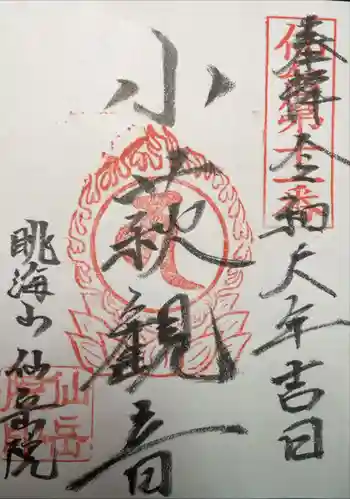 奉拝 令和元年吉日
小萩観音
眺海山 仙岳院
仙岳